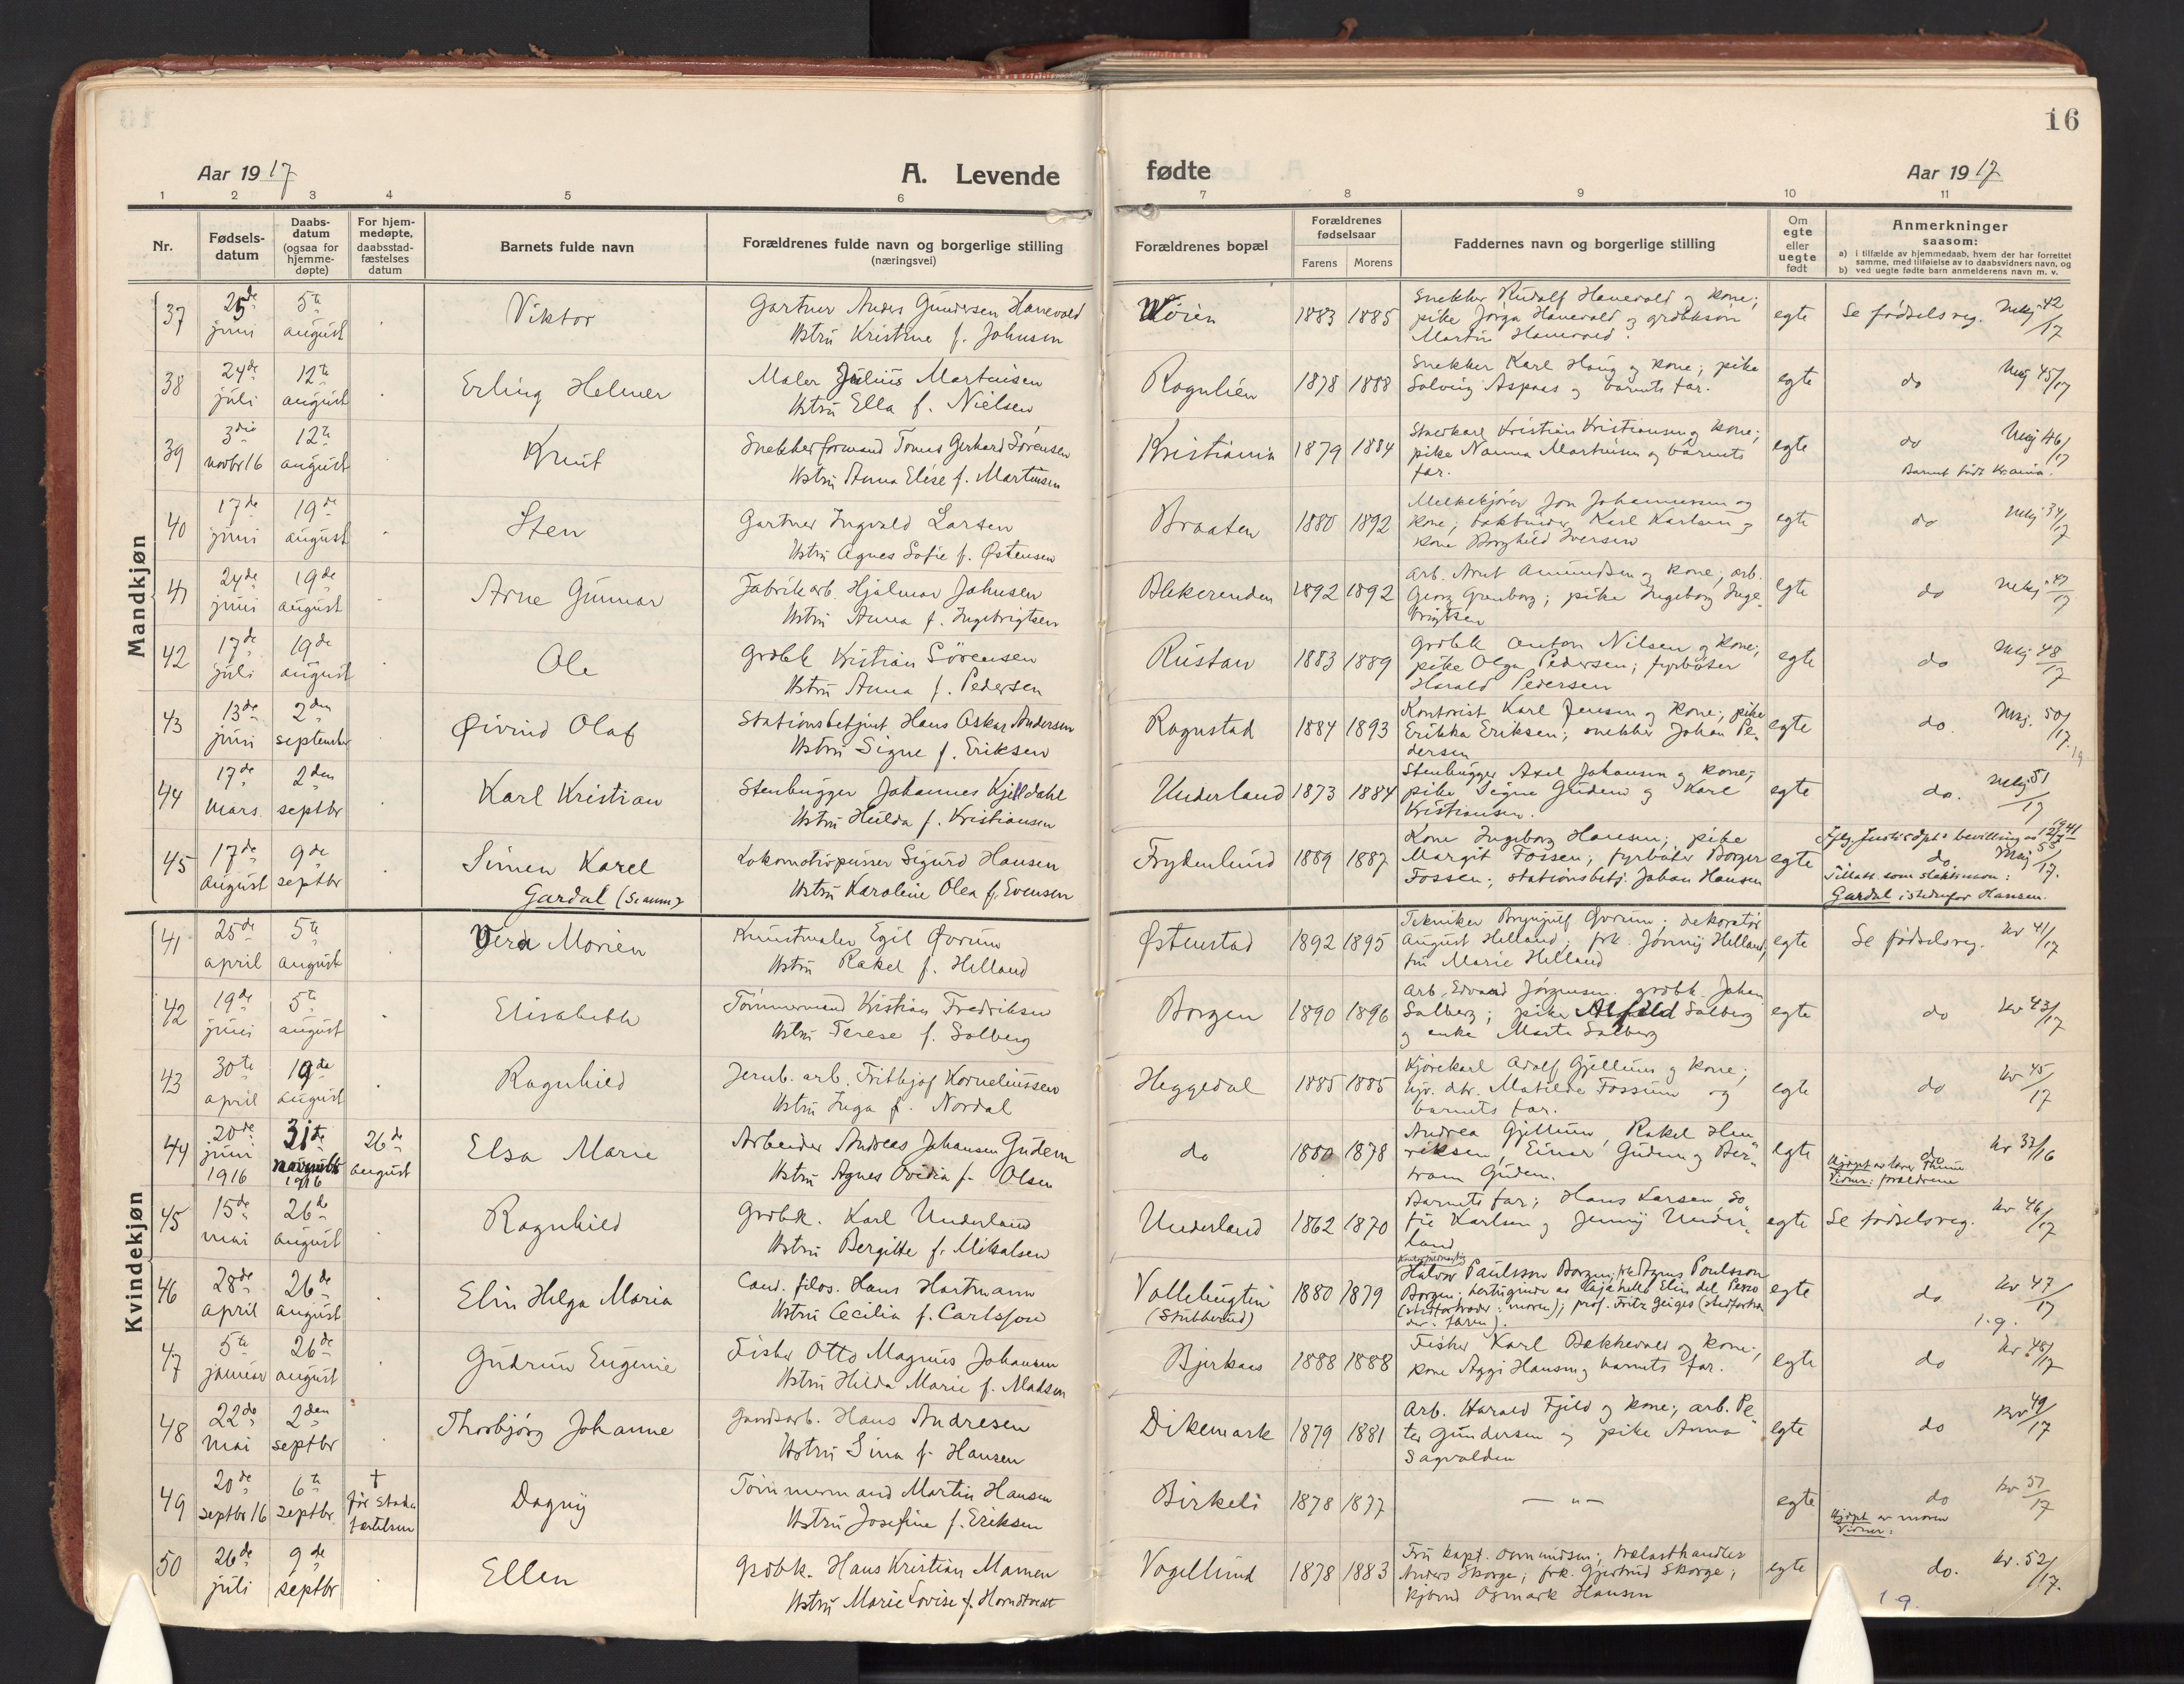 16
Aar 1917
A. Levende fødte
Aar 1917
1 2 3 4 5 6 7 8 9 10 11
Nr.
Fødsels-
datum
Daabs-
datum
(ogsaa for
hjemme-
døpte)
For hjem-
medøpte,
daabsstad-
fæstelses
datum
Barnets fulde navn
Forældrenes fulde navn og borgerlige stilling
(næringsvei)
Forældrenes bopæl
Forældrenes
fødselsaar
Farens Morens
Faddernes navn og borgerlige stilling
Om
egte
eller
uegte
født
Anmerkninger
saasom:
a) i tilfælde av hjemmedaab, hvem der har forrettet
samme, med tilføielse av to daabsvidners navn, og
b) ved uegte fødte barn anmelderens navn m. v.
Mandkjøn
37 25de juni 5te august Viktor
Gartner Anders Gundersen Hanevold
Hstru Kristine f. Johnsen
1883 1885
Snekker Rudolf Hanevold og kone;
pike Jørga Hanevold og grdbksøn
Martin Hanevold.
egte Se fødselsreg. 42/17
38 24de juli 12te august Erling Helmer
Maler Julius Martinsen
Hstru Ella f. Nielsen
Rognlien 1878 1888
Snekker Karl Haug og kone; pike
Solveig Aspaas og barnets far.
egte do 45/17
39 3die novbr 16 12te august Knut
Snekkerformand Tomas Gerhard Sørensen
Hstru Anna Elise f. Martinsen
Kristiania 1879 1884
Kristian Kristiansen og kone;
pike Nanna Martinsen og barnets
far.
egte do 46/17
Barnet født Kr.ania.
40 17de juni 19de august Sten
Gartner Ingvald Larsen
Hstru Agnes Sofie f. Østensen
Braaten 1880 1892
Melkekjører Jon Johannessen og
kone; bokbinder Karl Karlsen og
kone Borghild Iversen
egte do 34/17
41 24de juni 19de august Arne Gunnar
Fabrikarb. Hjalmar Johnsen
Hstru Anna f. Ingebrigtsen
Blekerenden 1892 1892
Arb. Arnt Amundsen og kone; arb.
Georg Grenborg; pike Ingeborg Inge-
brigtsen
egte do 47/17
42 17de juli 19de august Ole
Grdbk Kristian Sørensen
Hstru Anna f. Pedersen
Rustan 1883 1889
Grdbk Anton Nilsen og kone;
pike Olga Pedersen; fyrbøter
Harald Pedersen
egte do 48/17
43 13de juni 2den september Øivind Olaf
Stationsbetjent Hans Oskar Andersen
Hstru Signe f. Eriksen
Rognstad 1884 1893
Kontorist Karl Jensen og kone; pike
Erikka Eriksen; snekker Johan Pe-
dersen
egte do. 50/17
44 17de mars 2den septbr Karl Kristian
Stenhugger Johannes Kjelldahl
Hstru Hulda f. Kristiansen
Underland 1873 1884
Stenhugger Axel Johansen og kone;
pike Signe Gudem og Karl
Kristiansen.
egte do. 51/17
45 17de august 9de septbr Simen Karel
Gardal
Lokomotivpusser Sigurd Hansen
Hstru Karoline Olea f. Evensen
Frydenlund 1889 1887
Kone Ingeborg Hansen; pike
Margit Fossen; fyrbøter Borger
Fossen; stationsbetj. Johan Hansen
egte
Ifølge Justisdpts bevilling av 12/7 1941
do. 53/17.
Tillatt som slektsnavn:
Gardal istedenfor Hansen.
Kvindekjøn
41 25de april 5te august Vera Morien
Kunstmaler Egil Qvrum
Hstru Rakel f. Helland
Østenstad 1892 1895
Tekniker Brynjulf; dekoratør
August Helland; frk. Jenny Helland,
fru Marie Helland
egte Se fødselsreg. Kv 41/17
42 19de juni 5te august Elisabeth
Tømmermand Kristian Fredriksen
Hstru Terese f. Solberg
Borgen 1890 1896
Arb. Edvard Jørgensen. grdbk. Johan
Solberg; pike Alfild Solberg
og enke Marte Solberg
egte do Kv 43/17
43 30te april 19de august Ragnhild
Jernb. arb. Fritkjof Korneliussen
Hstru Inga f. Nordal
Heggedal 1885 1885
Kjørekarl Adolf Gjellum og kone;
Matilde Fossum og
barnets far.
egte do Kv 45/17
44 20de juni 1916 31te 1916 26de august Elsa Marie
Arbeider Andreas Johansen Gudem
Hstru Agnes Ovidia f. Olsen
do 1880 1878
Andrea Gjellum, Rakel Hen-
riksen, Einar Gudem og Ber-
tram Gudem.
egte do Kv 37/16
Hjdøpt av lærer Thune
Vidner: forældrene
45 15de mai 26de august Ragnhild
Grdbk. Karl Underland
Hstru Bergitte f. Mikalsen
Underland 1862 1870
Barnets far; Hans Larsen, So-
fie Karlsen og Jenny Under-
land
egte Se fødselsreg. Kv. 46/17
46 28de april 26de august Elin Helga Maria
Cand. filos. Hans Hartmann
Hstru Cecilia f. Carlsson
Vollehugtin
(Stubberud) 1880 1879
Halvor Paulsson Borgen, frk. Agnes Poulsson
Borgen; hertuginde av Elin del
(stedfortræder: moren); prof. Fritz Geiges (stedfortræ-
der: faren).
egte do Kv 47/17
47 5te januar 26de august Gudrun Eugenie
Fisker Otto Magnus Johansen
Hstru Hilda Marie f. Madsen
Bjerkaas 1888 1888
Fisker Karl Bakkevold og kone;
kone Aggi Hansen og barnets far.
egte do Kv 48/17
48 22de mai 2den septbr Thorbjørg Johanne
Gaardsarb. Hans Andresen
Hstru Sina f. Hansen
Dikemark 1879 1881
Arb. Harald Fjeld og kone; arb. Pe-
ter Gundersen og pike Anna
Sagvolden
egte do Kv 49/17
49 20de septbr 16 6te septbr. † før stad- fæstelsen Dagny
Tømmermand Martin Hansen
Hstru Josefine f. Eriksen
Birkeli 1878 1877
— " —
egte do Kv 51/17
Hjdøpt av moren
Vidner:
50 26de juli 9de septbr Ellen
Grdbk. Hans Kristian Mamen
Hstru Marie Lovise f. Horndtvedt
Vogellund 1878 1883
Fru kapt. Osmundsen; trælasthandler
Anders Skorge; frk. Gjertrud Skorge;
kjbmd Osmark Hansen
egte do. Kv. 52/17.
19.